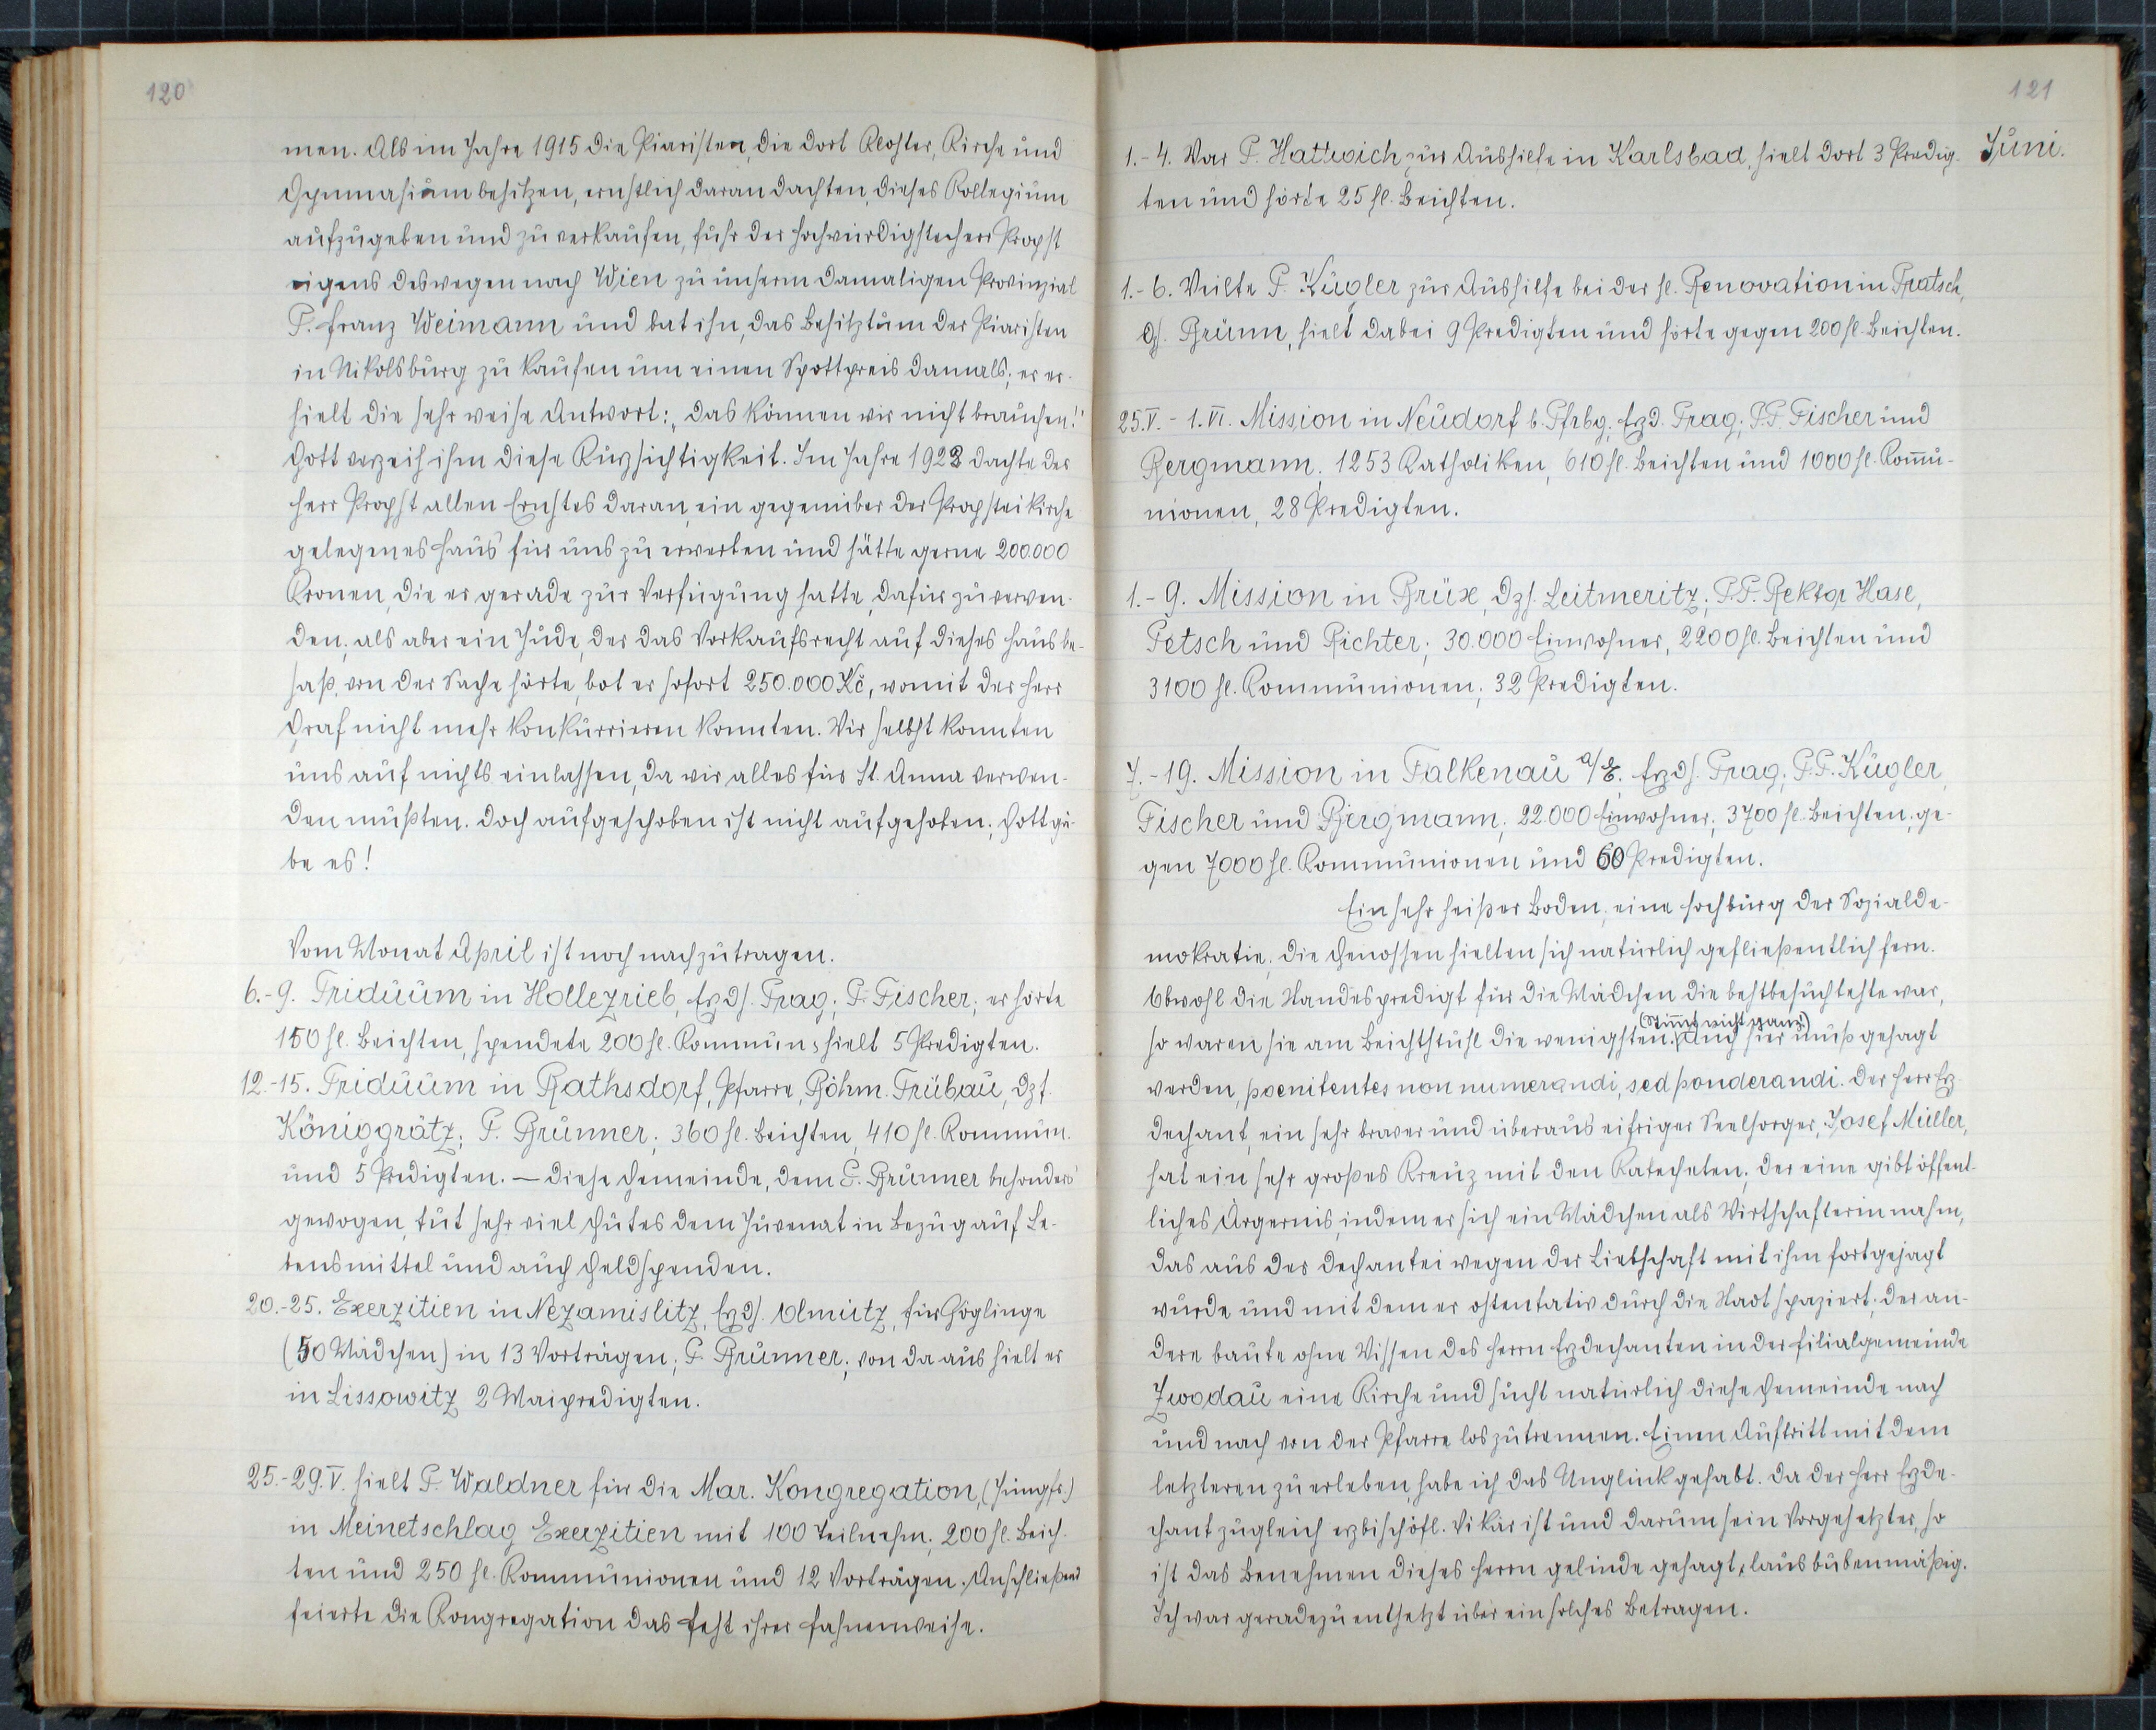 120
men. Als im Jahre 1915 die Piaristen, die dort Kloster, Kirche und
Gymnasium besitzen, ernstlich daran dachten, dieses Kollegium
aufzugeben und zu verkaufen, fuhr der hochwürdigste Herr Propst
eigens deswegen nach Wien zu unserm damaligen Provinzial
P. Franz Weimann und bat ihn, das Besitztum der Piaristen
in Nikolsburg zu kaufen um einen Spottpreis damals; er er-
hielt die sehr weise Antwort: „Das können wir nicht brauchen!"
Gott verzeih ihm diese Kurzsichtigkeit. Im Jahre 1923 dachte der
Herr Propst allen Ernstes daran, ein gegenüber der Propsteikirche
gelegenes Haus für uns zu erwerben und hätte gerne 200.000
Kronen, die er gerade zur Verfügung hatte, dafür zu verwen-
den; als aber ein Jude, der das Vorkaufsrecht auf dieses Haus be-
saß, von der Sache hörte, bot er sofort 250.000 Kč, womit der Herr
Graf nicht mehr konkurrieren konnten. Wir selbst konnten
uns auf nichts einlassen, da wir alles für St. Anna verwen-
den mußten. Doch aufgeschoben ist nicht aufgehoben; Gott ge-
be es!
Vom Monat April ist noch nachzutragen.
6.-9. Triduum in Hollezrieb, Erzd. Prag; P. Fischer; er hörte
150 hl. Beichten, spendete 200 hl. Kommun., hielt 5 Predigten.
12.-15. Triduum in Rathsdorf, Pfarre, Böhm. Trübau, Dzs.
Königgrätz; P. Brünner; 360 hl. Beichten, 410 hl. Kommun.
und 5 Predigten. — Diese Gemeinde, dem P. Brünner besonders
gewogen, tut sehr viel Gutes dem Juvenat in Bezug auf Le-
bensmittel und auch Geldspenden.
20.-25. Exerzitien in Nezamislitz, Erzd. Olmütz, für Zöglinge
(50 Mädchen) in 13 Vorträgen; P. Brünner; von da aus hielt er
in Lissowitz 2 Maipredigten.
25.-29.V. hielt P. Waldner für die Mar. Kongregation, (Jungfr.)
in Meinetschlag Exerzitien mit 100 Teilnehm.; 200 hl. Beich-
ten und 250 hl. Kommunionen und 12 Vorträgen. Anschließend
feierte die Kongregation das Fest ihrer Fahnenweihe.
121
Juni.
1.-4. War P. Hattwich zur Aushilfe in Karlsbad, hielt dort 3 Predig-
ten und hörte 25 hl. Beichten.
1.-6. Weilte P. Kügler zur Aushilfe bei der hl. Renovation in Pratsch,
D. Brünn, hielt dabei 9 Predigten und hörte gegen 200 hl. Beichten.
25.V.-1.VI. Mission in Neudorf b. Pfrbg; Erzd. Prag; P.P. Fischer und
Bergmann; 1253 Katholiken, 610 hl. Beichten und 1000 hl. Kom̄u-
nionen, 28 Predigten.
1.-9. Mission in Brüx, Dzs. Leitmeritz; P.P. Rektor Hase,
Petsch und Richter; 30.000 Einwohner, 2200 hl. Beichten und
3100 hl. Kommunionen; 32 Predigten.
7.-19. Mission in Falkenau a/E. Erzd. Prag; P.P. Kügler,
Fischer und Bergmann; 22.000 Einwohner; 3700 hl. Beichten; ge-
gen 7000 hl. Kommunionen und 60 Predigten.
Ein sehr heißer Boden, eine Hochburg der Sozialde-
mokratie; die Genossen hielten sich natürlich gefließentlich fern.
Obwohl die Standespredigt für die Mädchen die bestbesuchteste war,
(Stim̄t nicht ganz!)
so waren sie am Beichtstuhl die wenigsten. Auch hier muß gesagt
werden, poenitentes non numerandi, sed ponderandi. Der Herr Erz-
dechant, ein sehr braver und überaus eifriger Seelsorger, Josef Müller,
hat ein sehr großes Kreuz mit den Katecheten; der eine gibt öffent-
liches Ärgernis, indem er sich ein Mädchen als Wirtschafterin nahm,
das aus der Dechantei wegen der Liebschaft mit ihm fortgejagt
wurde und mit dem er ostentativ durch die Stadt spaziert; der an-
dere baute ohne Wissen des Herrn Erzdechanten in der Filialgemeinde
Zwodau eine Kirche und sucht natürlich diese Gemeinde nach
und nach von der Pfarre loszutrennen. Einen Auftritt mit dem
letzteren zu erleben, habe ich das Unglück gehabt. Da der Herr Erzde-
chant zugleich erzbischöfl. Vikär ist und darum sein Vorgesetzter, so
ist das Benehmen dieses Herrn gelinde gesagt, lausbubenmäßig.
Ich war geradezu entsetzt über ein solches Betragen.